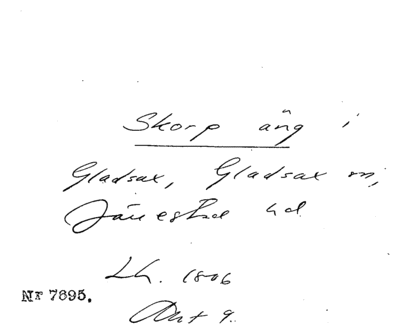 Skorp äng i
Gladsax, Gladsax sn,
Järrestad hd
Lh. 1806
Akt 9.
Nr 7695.